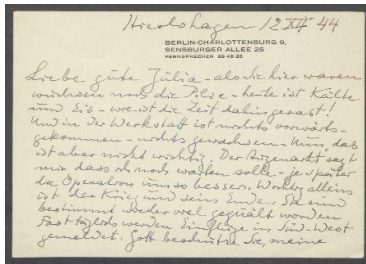 Hierlshagen 12 XII 44
BERLIN-CHARLOTTENBURG 9,
SENSBURGER ALLEE 26
FERNSPRECHER 99 45 25
Liebe gute Julia – als Sie hier waren
wuchsen noch die Pilze – heute ist Kälte
und Eis – wie ist die Zeit dahingerast!
Und in der Werkstatt ist nichts vorwärts-
gekommen – nichts gewachsen – Nun, das
ist aber nicht wichtig. Der Augenarzt sagt
mir dass ich noch warten solle – je später
die Operation um so besser. Wichtig allein
ist der Krieg und sein Ende. Sie sind
bestimmt wieder viel gequält worden
Fast täglich werden Einflüge in Süd-West
gemeldet. Gott beschütze Sie, meine